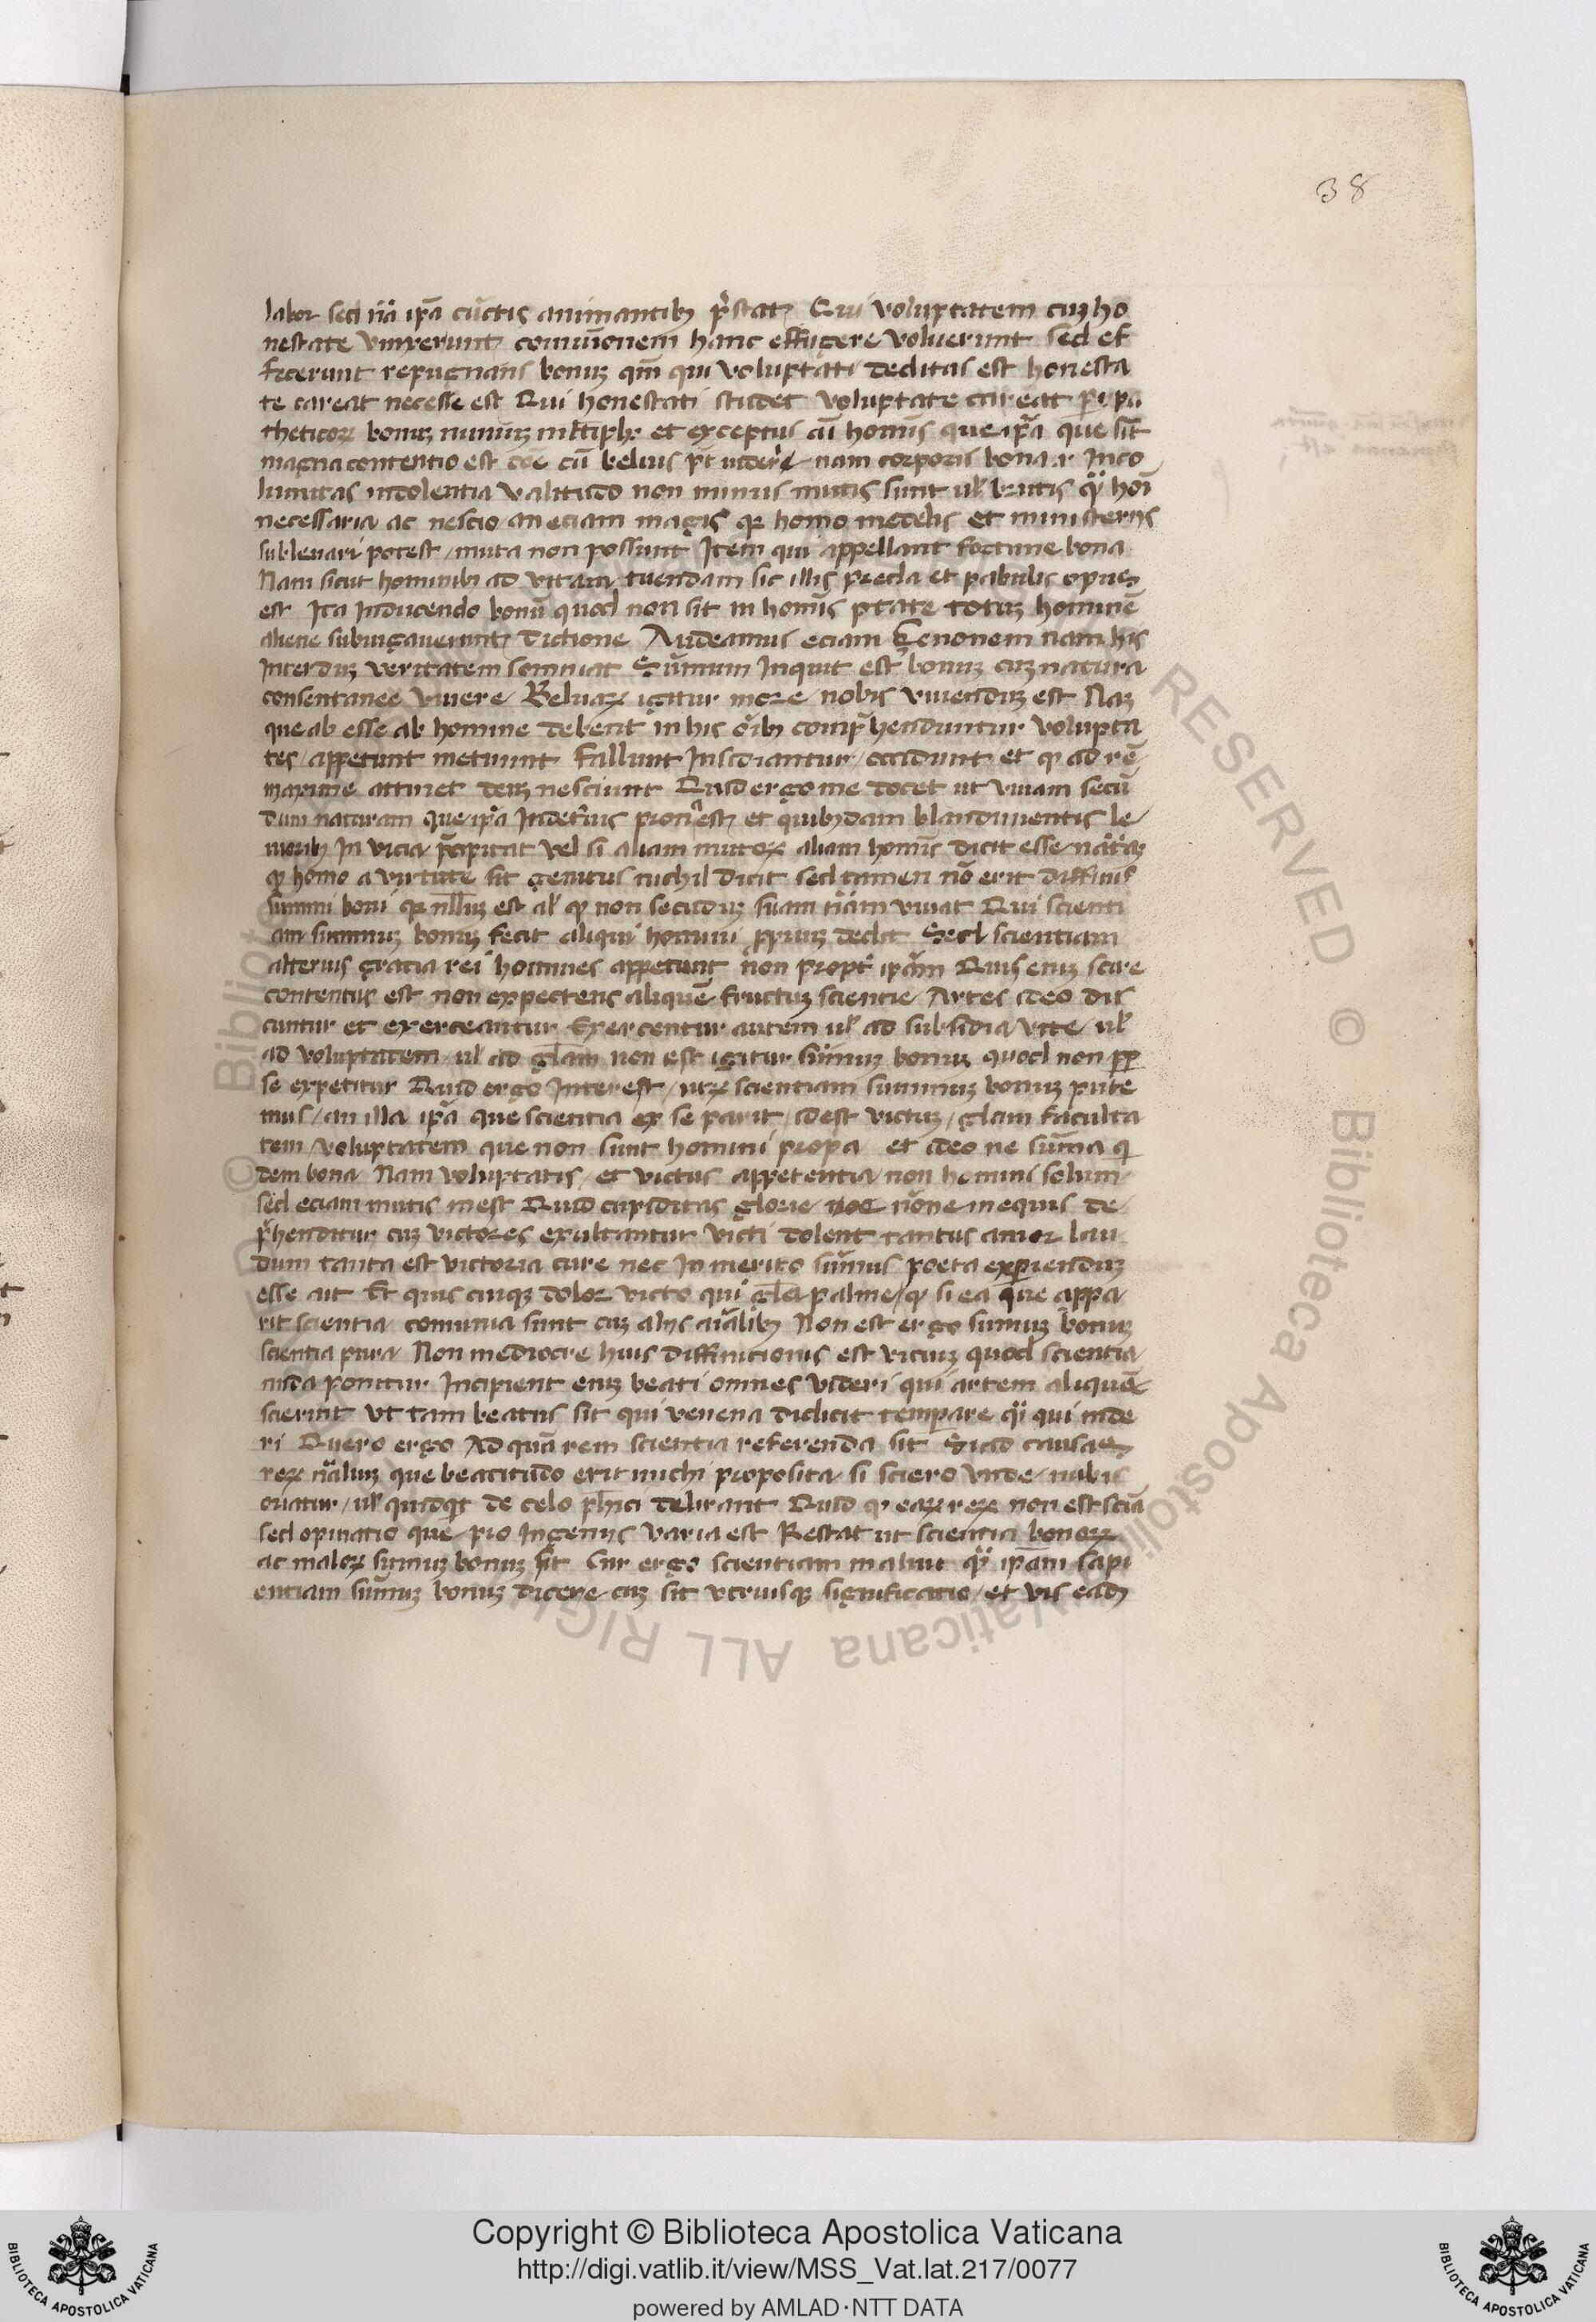 38
labor sed nã ipã cũctis animantibꝫ p̃stat Qui voluptatem cuꝫ ho
nestate vinxerunt comunionem hanc effugere voluerunt sed ef
fecerunt repugnans bonuꝫ qm̃ qui voluptati deditas est honesta
te careat necesse est Qui honestati studet voluptate careat peripa
theticoꝝ bonuꝫ nimiuꝫ et exceptis ai homĩs que ip̃a que sit
magna contentio est cũ beluis nam corporis bona .i. Inco
lumitas indolentia valitudo non minus mutis sunt ul̃ brutis hoĩ
necessaria ac nescio an eciam magis qꝫ homo medelis et ministeriis
subleuari potest / muta non possunt Item qui appellant fortune bona
Nam sicut hominibꝫ ad vitam tuendam sic illis preda et pabulis opus
est Ita Inducendo bonũ quod non sit in homĩs p̃tate totuꝫ hominẽ
aliene subiugauerunt dictione Audeamus eciam Zenonem nam his
Interduꝫ veritatem somniat Sũmum Inquit est bonuꝫ cuꝫ natura
consentanee viuere Beluaꝝ igitur more nobis viuenduꝫ est Naꝫ
que ab esse ab homine debent in his oĩbꝫ compr̃henduntur volupta
tes / appetunt metuunt fallunt Insidiantur / occidunt et qꝫ ad rẽ
maxime attinet deuꝫ nesciunt Quid ergo me docet ut viuam secũ
dum naturam que ip̃a Indeterius pron̾ est et quibꝫdam blandimentis le
nioribꝫ In vicia p̃cipitat vel si aliam mutoꝝ aliam homĩs dicit esse nãtãꝫ
qꝫ homo a virtute sit genitus nichil dicit sed tamen nõ erit diffinis
summi boni qꝛ nullũ est al̃ qꝫ non secũduꝫ suam nãm viuat Qui scienti
am summuꝫ bonuꝫ fecit aliqui homini ꝓpriuꝫ dedit Sed scientiam
alterius gratia rei homines appetunt non propt̃ ipãm Quis enꝫ scire
contentus est non expectens aliquẽ fructuꝫ scientie Artes ideo dis
cuntur et exerceantur Exercentur autem ul̃ ad subsidia vite / ul̃
ad voluptatem / ul̃ ad glãm non est igitur sũmuꝫ bonuꝫ quod non ꝓp
se expetitur Quid ergo Interest / utꝝ scientiam summuꝫ bonuꝫ pute
mus / an illa ipã que scientia ex se parit / idest victuꝫ / glam faculta
tem / voluptatem que non sunt homini propa et ideo ne sũma q
dem bona Nam voluptatis / et victus appetentia non homini solum
sed eciam mutis inest Quid cupiditas glorie noc nõne in equis de
p̃henditur cuꝫ victores exultantur victi dolent tantus amor lau
dum tanta est victoria cure nec Inmerito sũmus poeta experienduꝫ
esse ait Et quis cuiqꝫ dolor victo qui gl̃a palme / qꝫ si ea que appa
rit scientia comunia sunt cuꝫ aliis aĩalibꝫ Non est ergo sumuꝫ bonuꝫ
scientia pura Non mediocre huis diffinitionis est vitiuꝫ quod scientia
nuda ponitur Incipient enꝫ beati omnes videri qui artem aliquẽ
scierint ut tam beatus sit qui venena didicit temperare qui mde
ri Quero ergo Ad quã rem scientia referenda sit Si ad causas
reꝝ nãliuꝫ que beatitudo erit michi proposita / si sciero unde / nilus
oriatur / ul̃ quidqͥd de celo phĩci delirant Quid qꝫ eaꝝ reꝝ non est sciã
sed opinatio que pro Ingeniis varia est Restat ut scientia bonoꝝ
ac maloꝝ sũmuꝫ bonuꝫ sit Cur ergo scientiam maluit ipãm sapi
entiam sũmuꝫ bonuꝫ dicere cuꝫ sit utriusqꝫ significatio / et vis eadꝫ
© Biblioteca Apostolica Vaticana ALL RIGHTS RESERVED
Copyright © Biblioteca Apostolica Vaticana
http://digi.vatlib.it/view/MSS_Vat.lat.217/0077
powered by AMLAD·NTT DATA
BIBLIOTECA APOSTOLICA VATICANA
BIBLIOTECA APOSTOLICA VATICANA